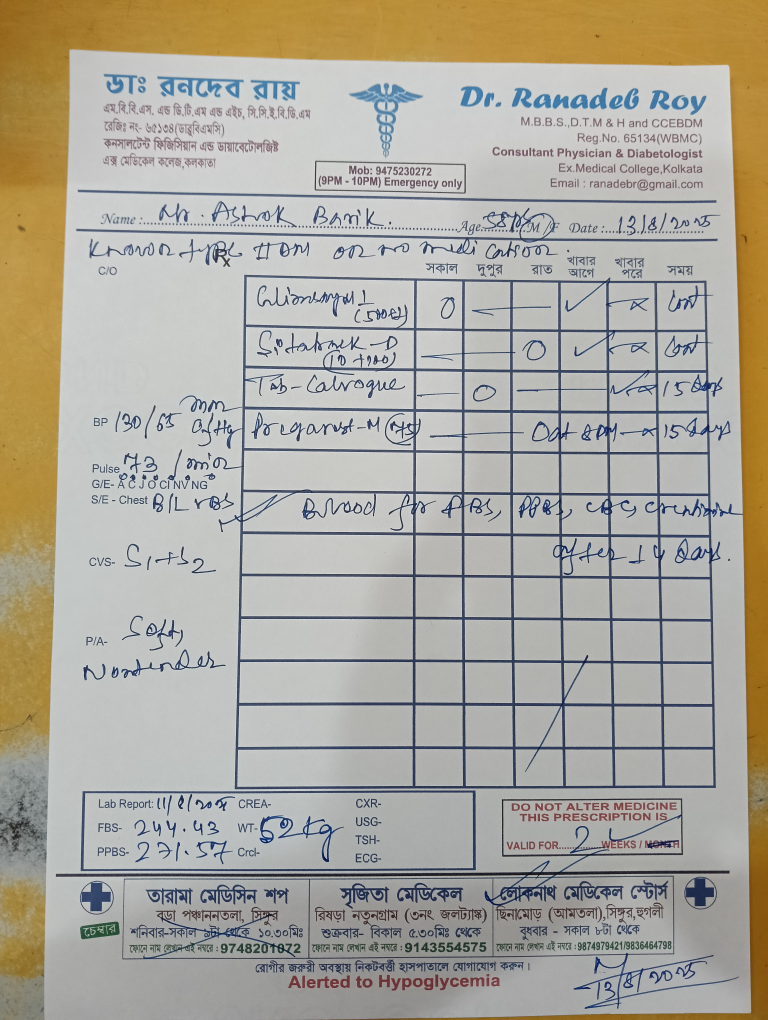 ডাঃ রনদেব রায়
এম.বি.বি.এস. এন্ড ডি.টি.এম এন্ড এইচ, সি.সি.ই.বি.ডি.এম
রেজিঃ নং- ৬৫১৩৪(ডাব্লুবিএমসি)
কনসালটেন্ট ফিজিসিয়ান এন্ড ডায়াবেটোলজিষ্ট
এক্স মেডিকেল কলেজ,কলকাতা
Mob: 9475230272
(9PM - 10PM) Emergency only
Dr. Ranadeb Roy
M.B.B.S.,D.T.M & H and CCEBDM
Reg.No. 65134(WBMC)
Consultant Physician & Diabetologist
Ex.Medical College,Kolkata
Email : ranadebr@gmail.com
Name : Mr. Ashok Barik. Age 58 M/F Date : 13/8/2025
Known type II DM on no medication.
Rx
C/O
সকাল দুপুর রাত খাবার আগে খাবার পরে সময়
(500) O ✓ × Cont
(10+500) O ✓ × Cont
Tab- O × 15 Days
BP 130/65 mm of Hg
-M (75) 8PM × 15 Days
Pulse 73 /min
G/E- A C J O CI NV NG
S/E - Chest B/L VBS
Blood for FBS, PPBS, CBC, Creatinine
after 14 Days.
CVS- S1+S2
P/A- Soft,
Nontender
Lab Report: 11/8/2025 CREA- CXR-
FBS- 244.43 WT- 52kg USG-
PPBS- 271.57 Crcl- TSH-
ECG-
DO NOT ALTER MEDICINE
THIS PRESCRIPTION IS
VALID FOR 2 WEEKS / MONTH
চেম্বার
তারামা মেডিসিন শপ
বড়া পঞ্চাননতলা, সিঙ্গুর
শনিবার-সকাল ৯টা থেকে ১০.৩০মিঃ
ফোনে নাম লেখান এই নম্বরে : 9748201072
সৃজিতা মেডিকেল
রিষড়া নতুনগ্রাম (৩নং জলট্যাঙ্ক)
শুক্রবার- বিকাল ৫.৩০মিঃ থেকে
ফোনে নাম লেখান এই নম্বরে : 9143554575
লোকনাথ মেডিকেল স্টোর্স
ছিনামোড় (আমতলা),সিঙ্গুর,হুগলী
বুধবার - সকাল ৮টা থেকে
ফোনে নাম লেখান এই নম্বরে : 9874979421/9836464798
রোগীর জরুরী অবস্থায় নিকটবর্ত্তী হাসপাতালে যোগাযোগ করুন।
Alerted to Hypoglycemia
13/8/2025